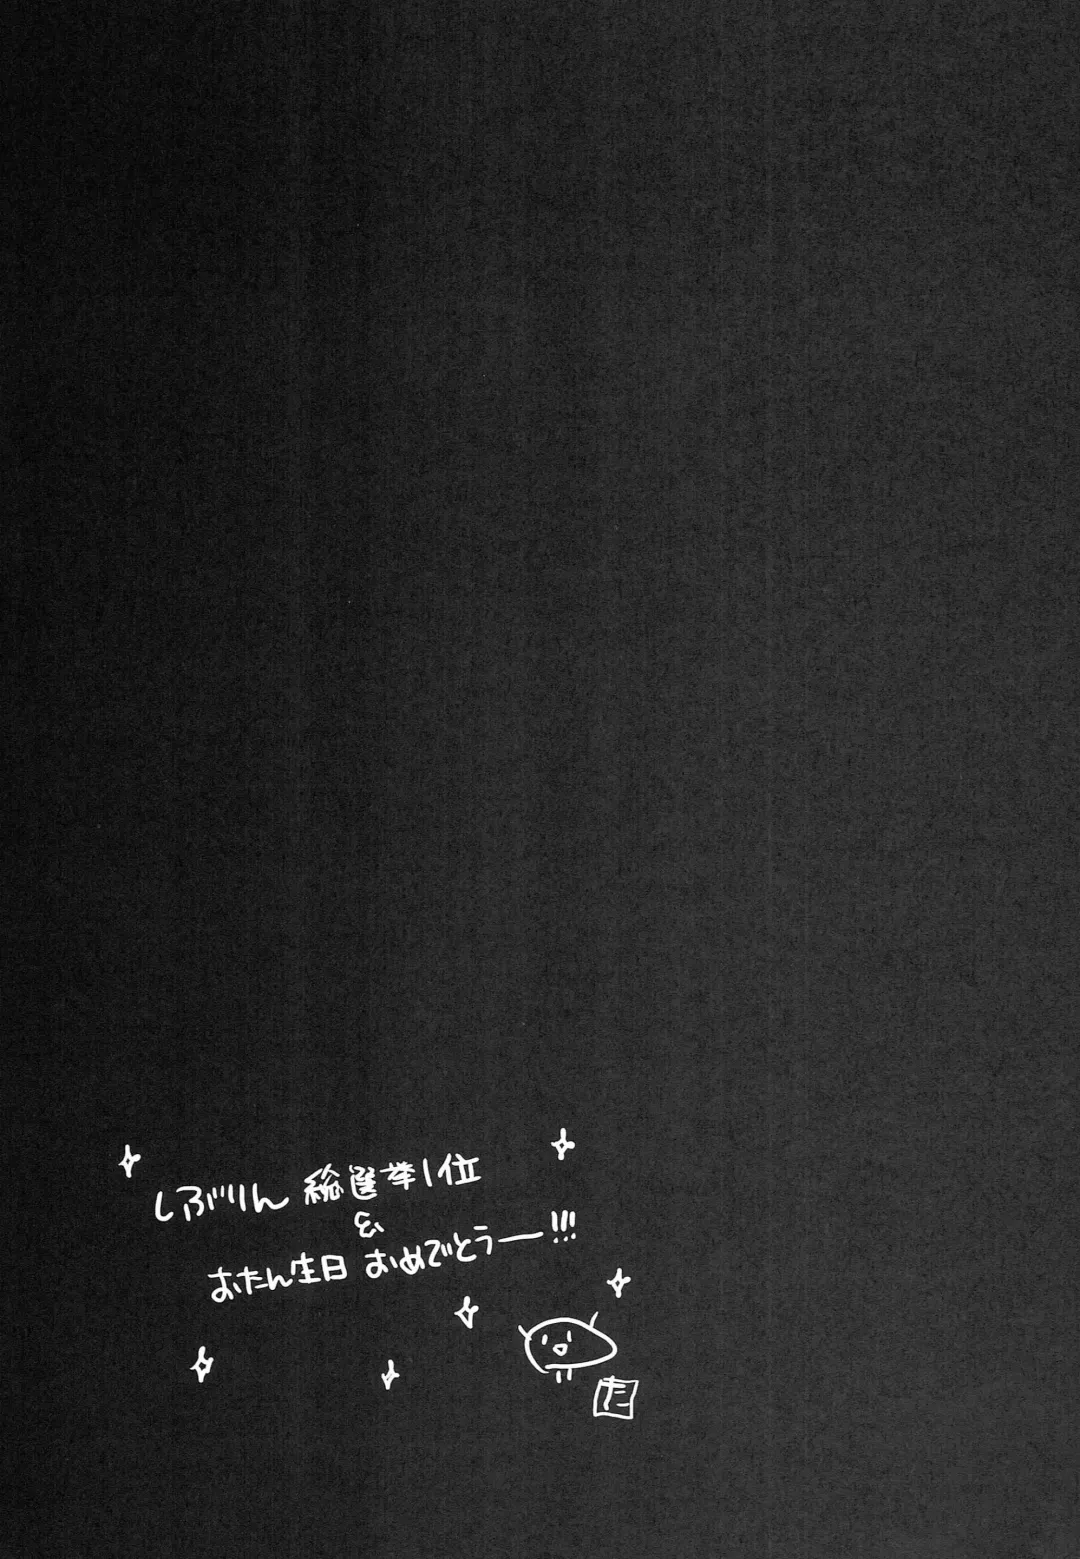 しぶりん 総選挙1位
&
おたん生日 おめでとうー!!!
た